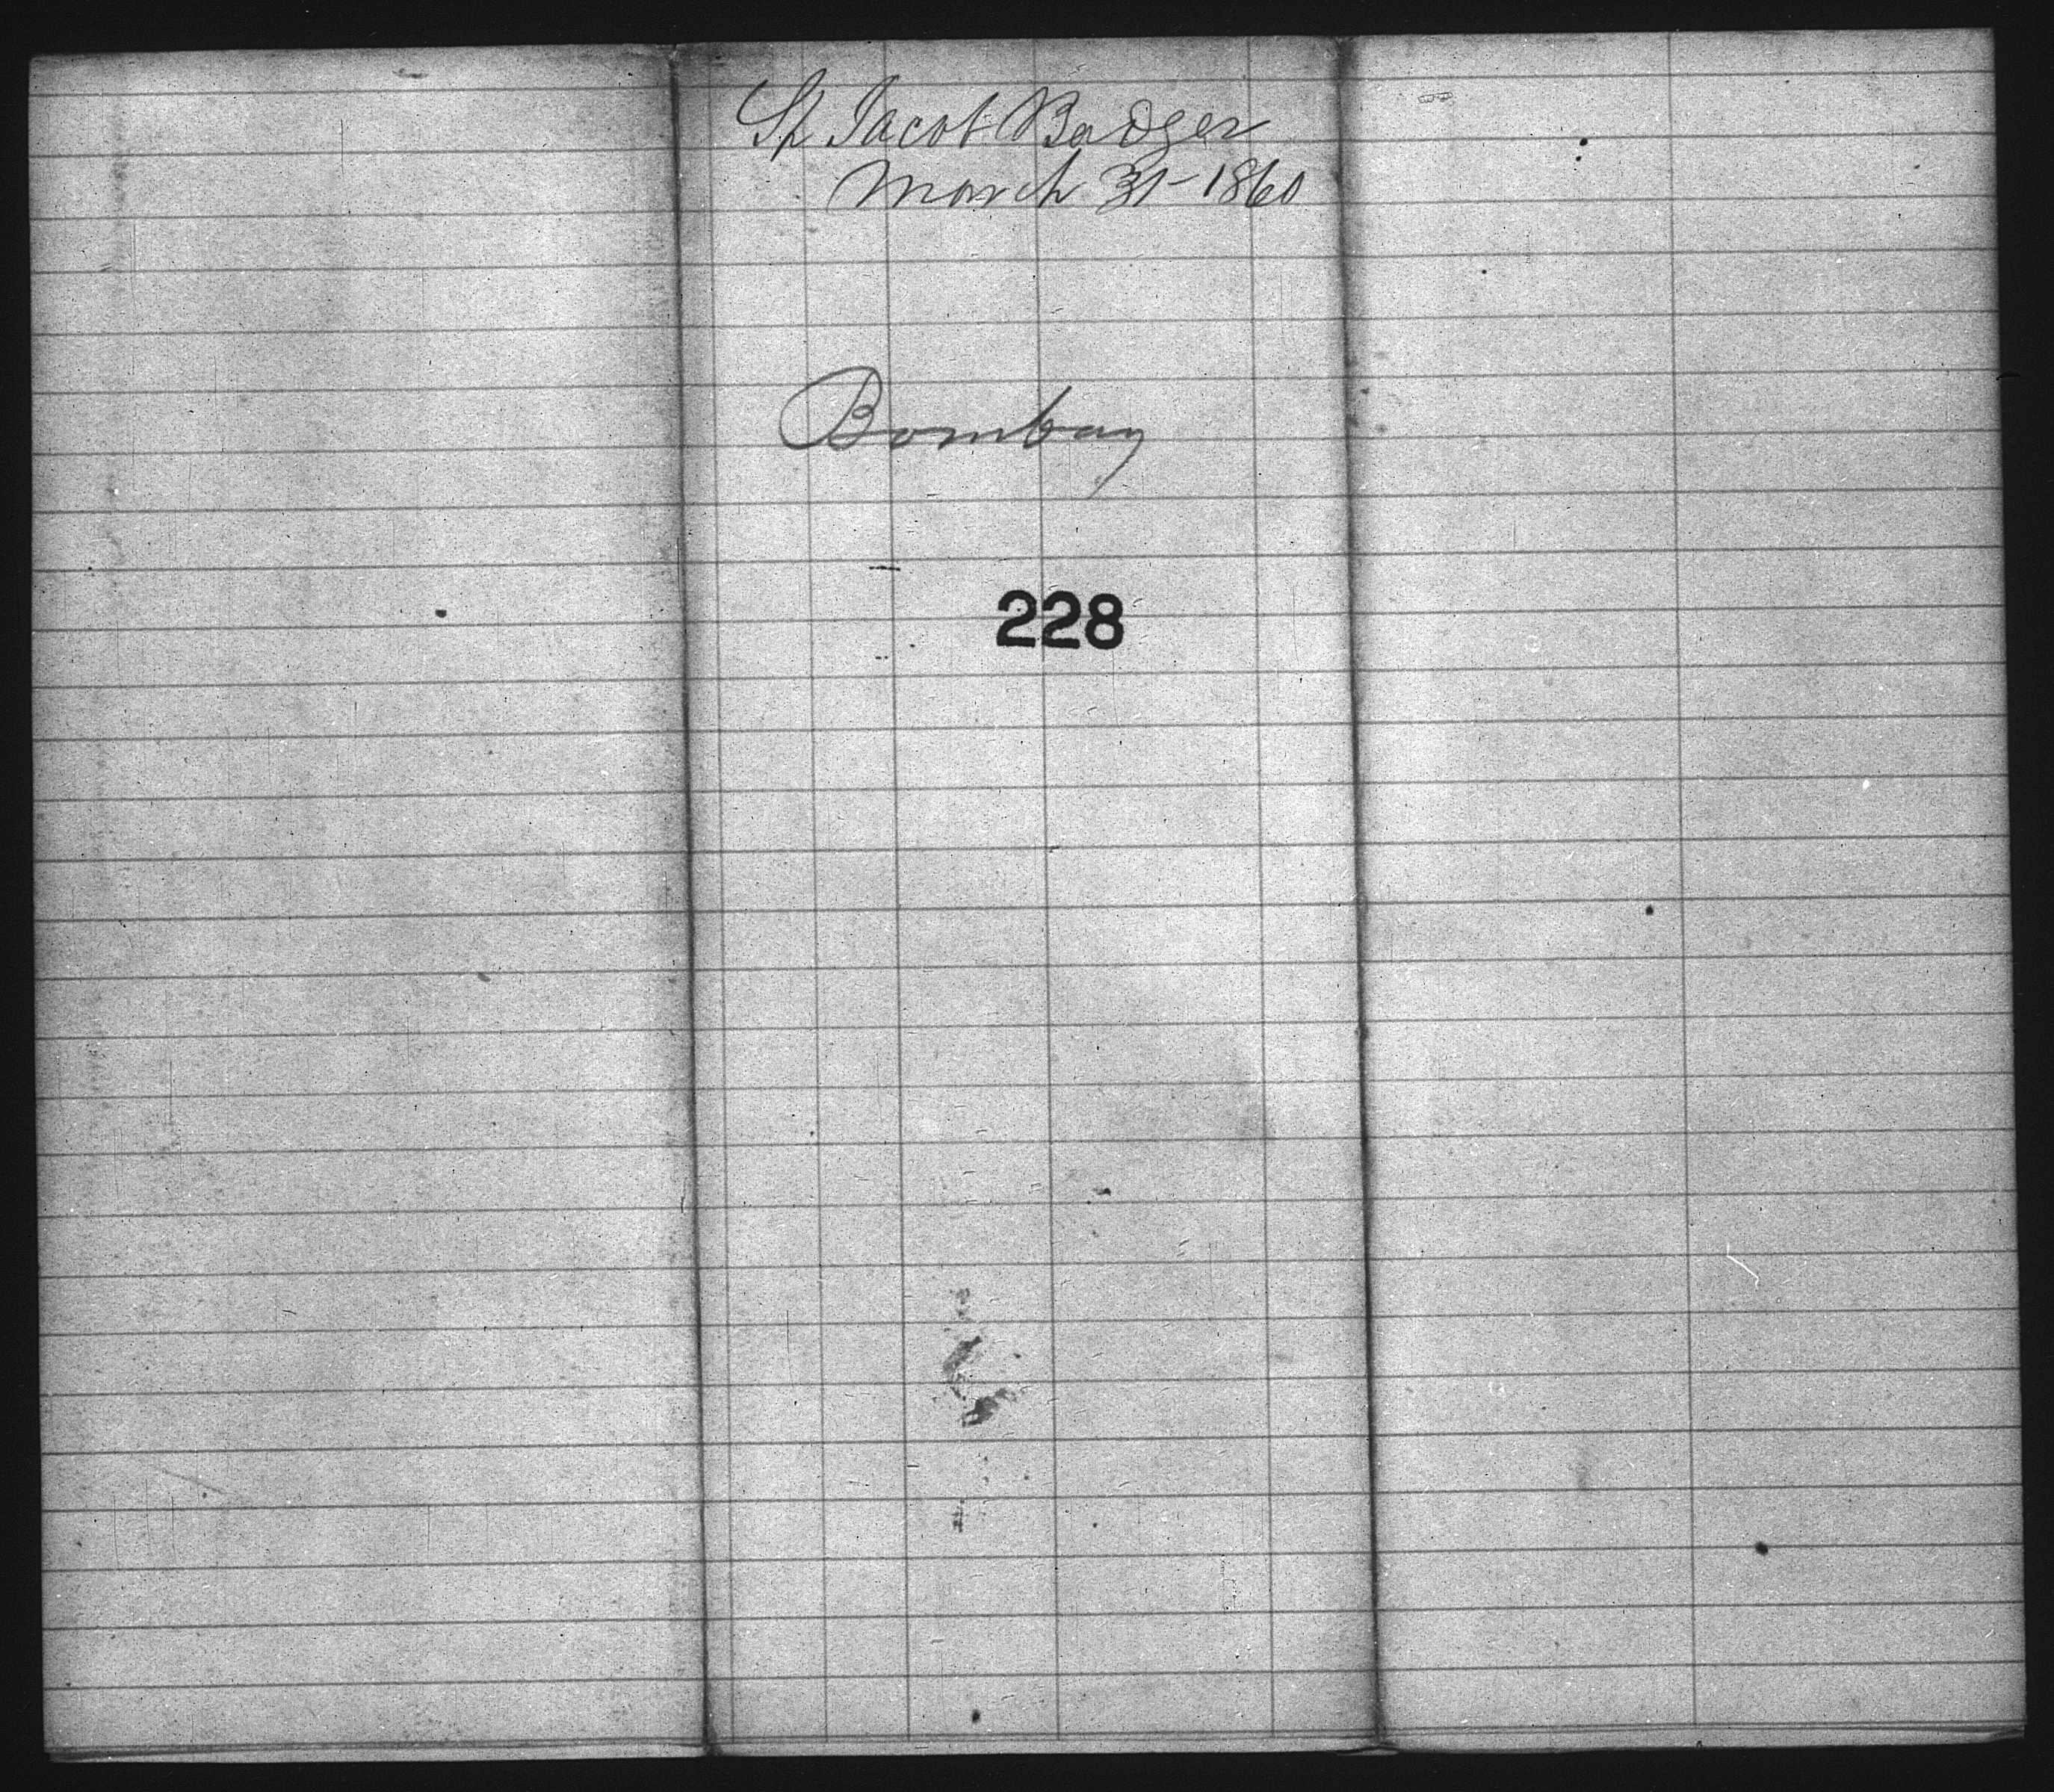 Sh Jacob Badger
March 31-1860
Bombay
228